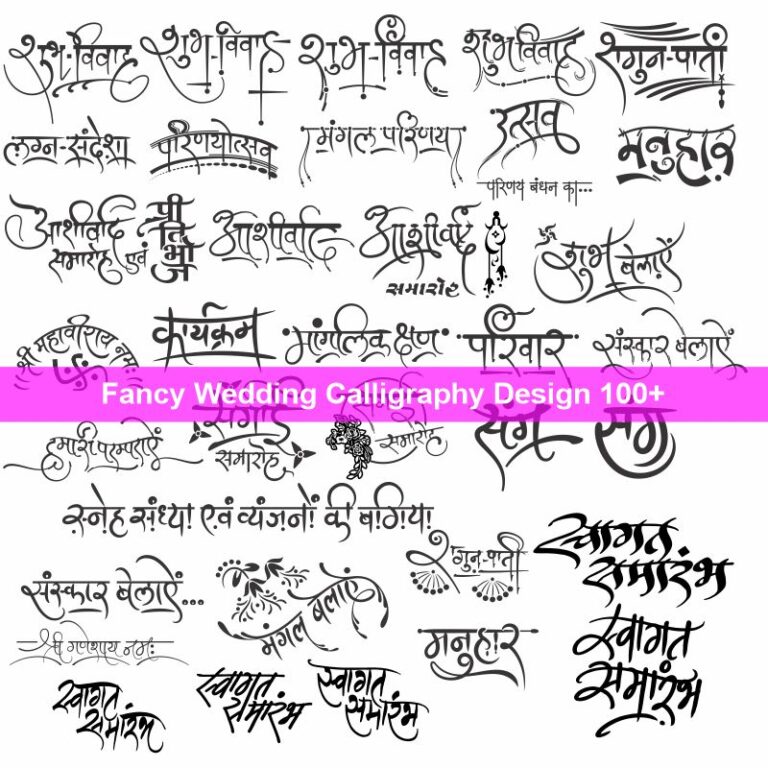 शुभ-विवाह
शुभ-विवाह
शुभ-विवाह
शुभ विवाह
शगुन-पाती
लग्न-संदेशा
परिणयोत्सव
मंगल परिणय
उत्सव
परिणय बंधन का...
मनुहार
आशीर्वाद
समारोह एवं
प्रीतिभोज
आशीर्वाद
आशीर्वाद
समारोह
शुभ बेलाऐं
श्री महावीराय नमः
कार्यक्रम
मांगलिक क्षण
परिवार
संस्कार बेलाऐं
Fancy Wedding Calligraphy Design 100+
हमारी परम्पराऐं
सगाई
समारोह
सगाई
समारोह
संग
संग
स्नेह संध्या एवं व्यंजनों की बगिया
संस्कार बेलाऐं...
मंगल बेलाऐं
शगुन-पाती
स्वागत
समारंभ
श्री गणेशाय नमः
मनुहार
स्वागत
समारंभ
स्वागत
समारंभ
स्वागत
समारंभ
स्वागत
समारंभ